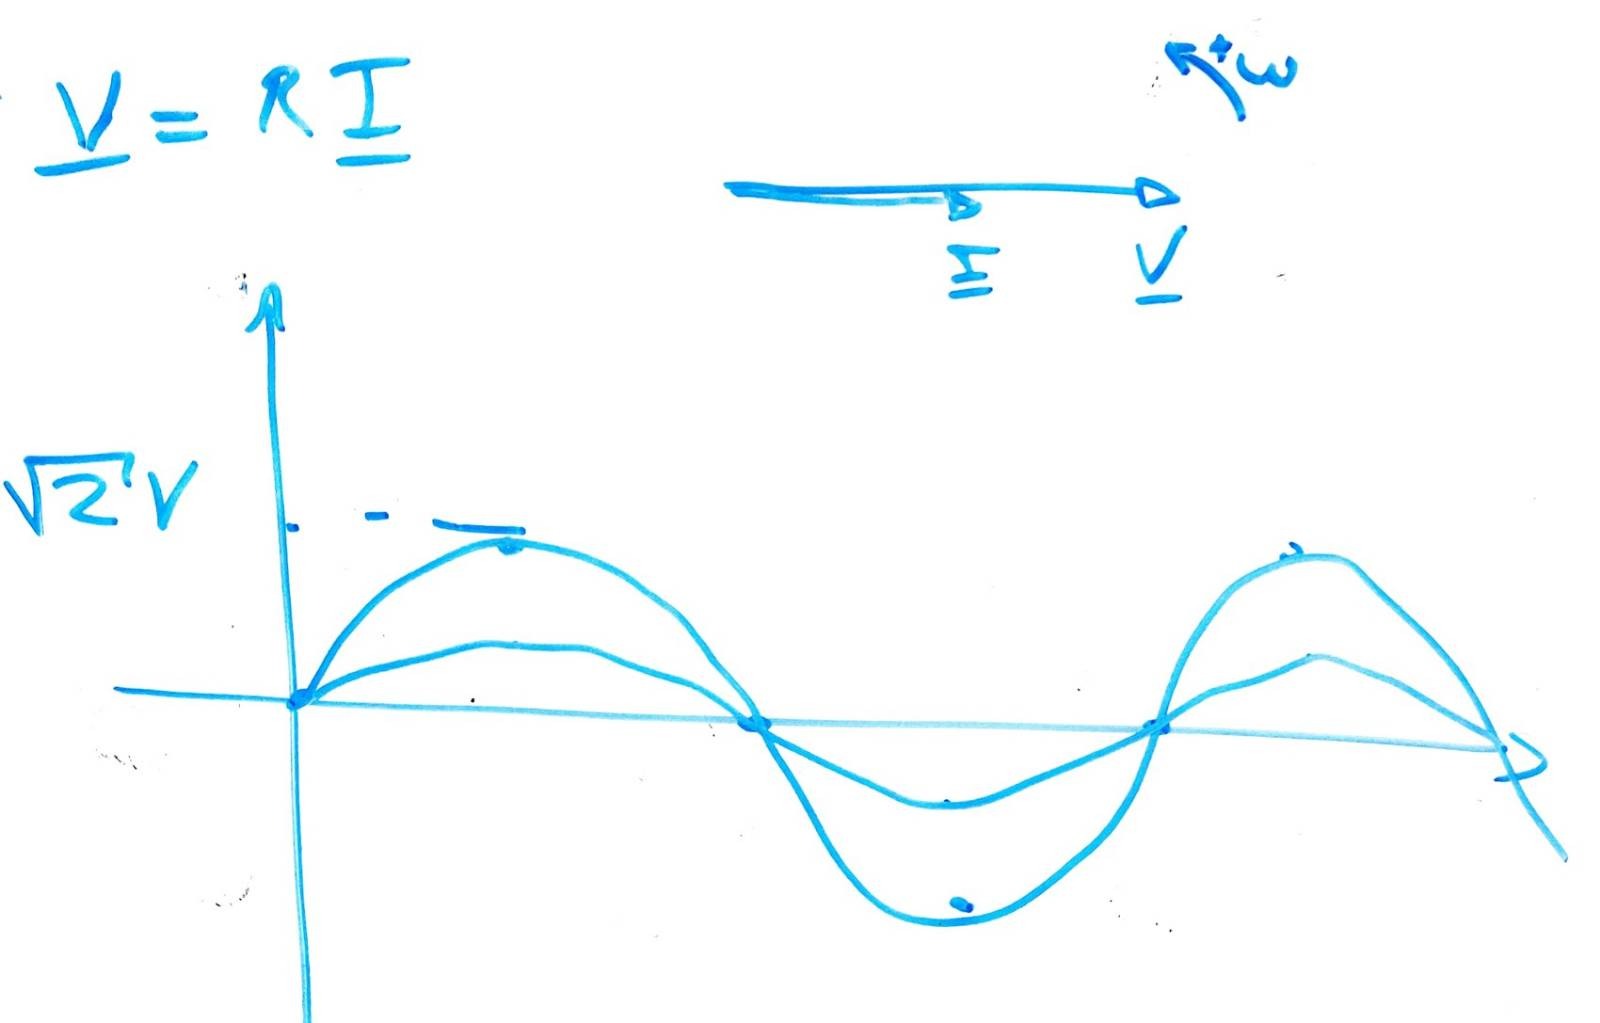 V = R I
+ω
I
V
√2 V